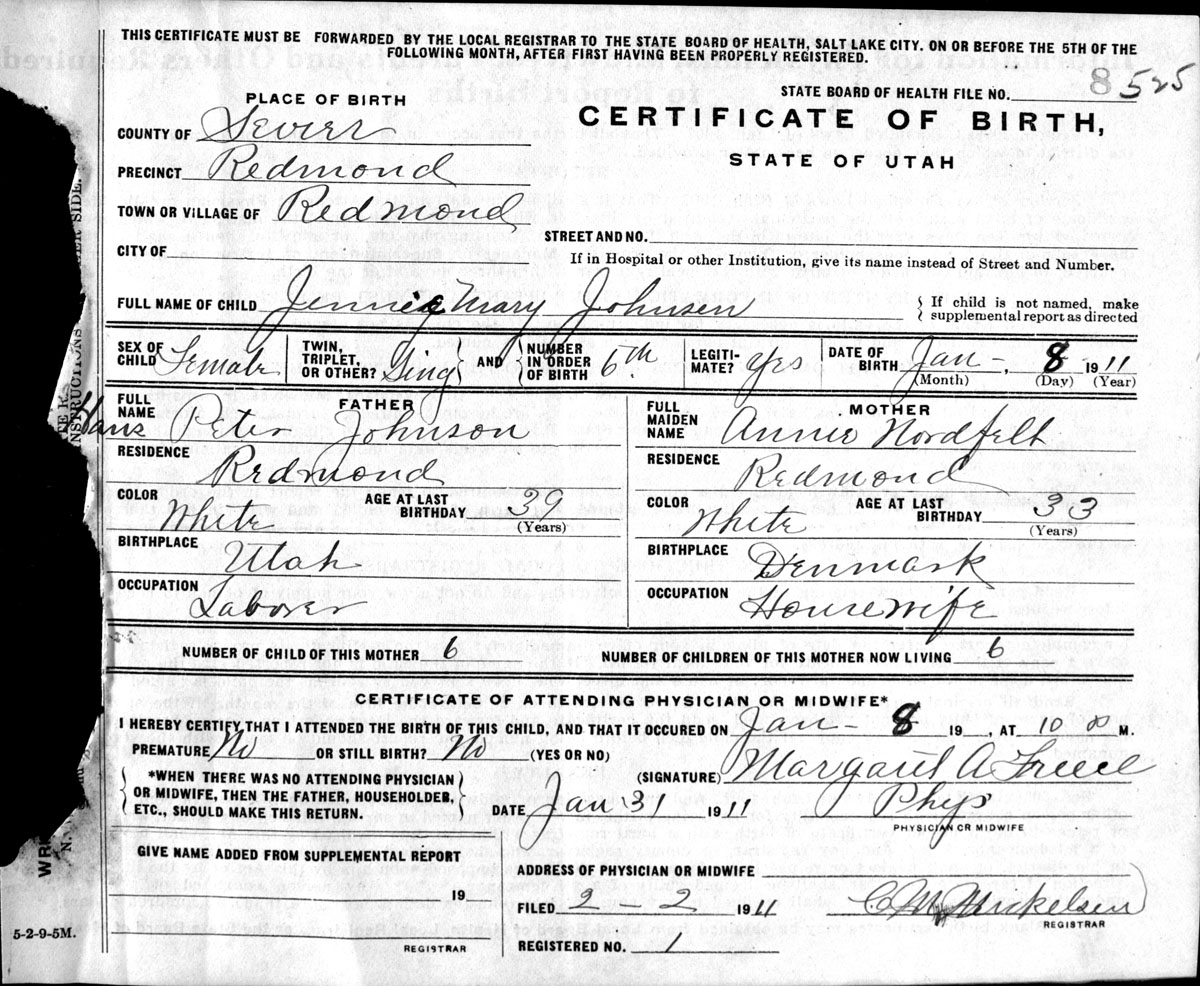 THIS CERTIFICATE MUST BE FORWARDED BY THE LOCAL REGISTRAR TO THE STATE BOARD OF HEALTH, SALT LAKE CITY. ON OR BEFORE THE 5TH OF THE
FOLLOWING MONTH, AFTER FIRST HAVING BEEN PROPERLY REGISTERED.
STATE BOARD OF HEALTH FILE NO. 8 525
PLACE OF BIRTH
CERTIFICATE OF BIRTH,
STATE OF UTAH
COUNTY OF Sevier
PRECINCT Redmond
TOWN OR VILLAGE OF Redmond
STREET AND NO.
CITY OF
If in Hospital or other Institution, give its name instead of Street and Number.
FULL NAME OF CHILD Jennie Mary Johnsen
If child is not named, make
supplemental report as directed
SEX OF CHILD Female
TWIN, TRIPLET, OR OTHER? Sing
AND NUMBER IN ORDER OF BIRTH 6th
LEGITI- MATE? Yes
DATE OF BIRTH Jan - 8 1911
(Month) (Day) (Year)
FATHER
FULL NAME Hans Peter Johnson
RESIDENCE Redmond
COLOR White
AGE AT LAST BIRTHDAY 39
(Years)
BIRTHPLACE Utah
OCCUPATION Laborer
MOTHER
FULL MAIDEN NAME Annie Nordfelt
RESIDENCE Redmond
COLOR White
AGE AT LAST BIRTHDAY 33
(Years)
BIRTHPLACE Denmark
OCCUPATION Housewife
NUMBER OF CHILD OF THIS MOTHER 6
NUMBER OF CHILDREN OF THIS MOTHER NOW LIVING 6
CERTIFICATE OF ATTENDING PHYSICIAN OR MIDWIFE*
I HEREBY CERTIFY, THAT I ATTENDED THE BIRTH OF THIS CHILD, AND THAT IT OCCURED ON Jan - 8 19 , AT 10 M.
PREMATURE No OR STILL BIRTH? No (YES OR NO)
(SIGNATURE) Margaret A Freece
*WHEN THERE WAS NO ATTENDING PHYSICIAN
OR MIDWIFE, THEN THE FATHER, HOUSEHOLDER,
ETC., SHOULD MAKE THIS RETURN.
DATE Jan 31 1911
Phys
PHYSICIAN OR MIDWIFE
GIVE NAME ADDED FROM SUPPLEMENTAL REPORT
ADDRESS OF PHYSICIAN OR MIDWIFE
19
FILED 2 2 1911
C M Mickelsen
REGISTRAR
5-2-9-5M.
REGISTRAR
REGISTERED NO. 1